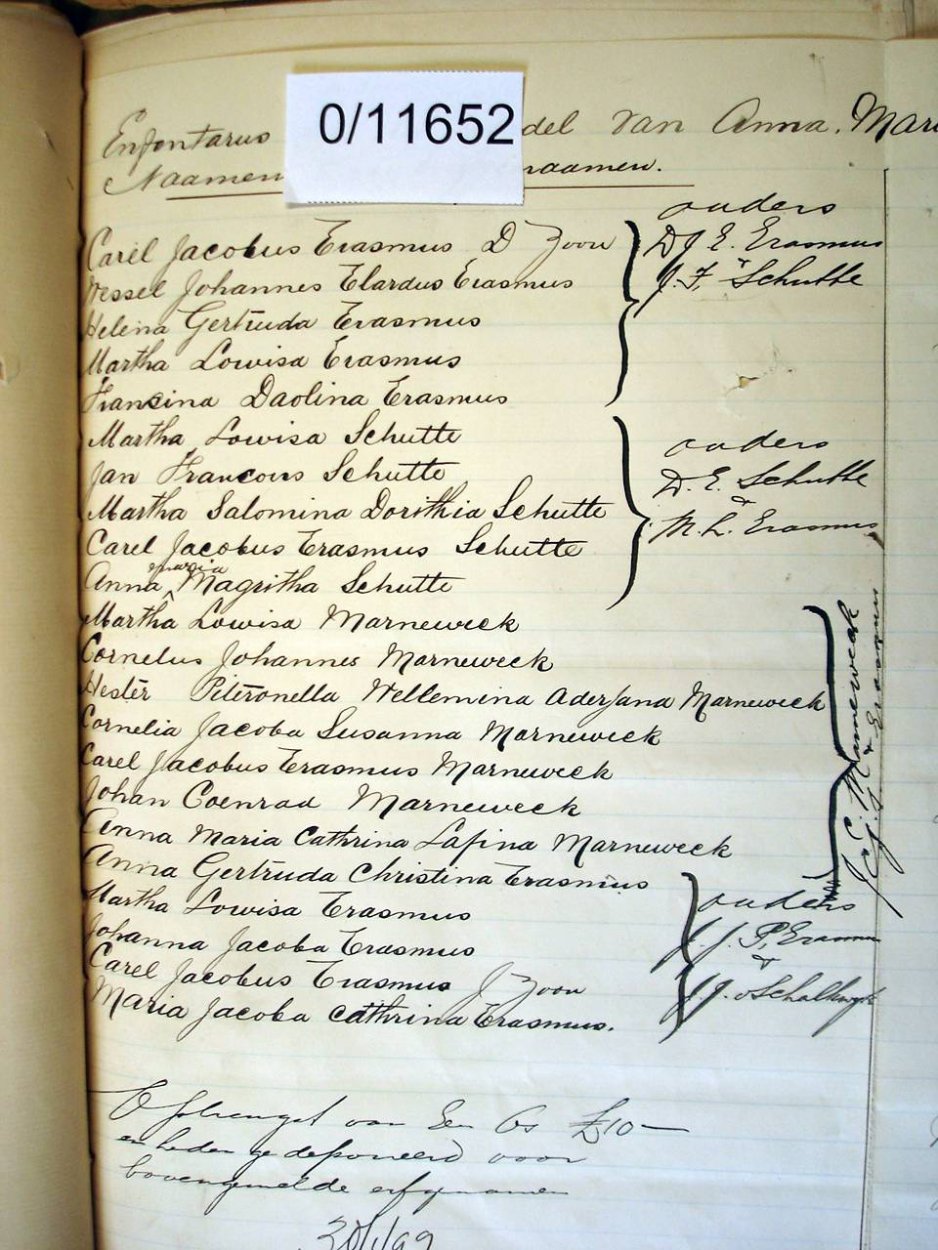 0/11652
Enfentarus del van Anna. Mari
Naamen naamen.
ouders
Carel Jacobus Erasmus D Zoon
D J E. Erasmus
&
Wessel Johannes Elardus Erasmus
J. F. Schutte
Helena Gertruda Erasmus
Martha Lowisa Erasmus
Fransina Daolina Erasmus
Martha Lowisa Schutte
ouders
Jan Francois Schutte
D. E. Schutte
&
Martha Salomina Dorithia Schutte
M. L. Erasmus
Carel Jacobus Erasmus Schutte
Anna Maria Magritha Schutte
Martha Lowisa Marneweck
Cornelus Johannes Marneweck
Hester Piteronella Wellemina Aderjana Marneweck
Cornelia Jacoba Susanna Marneweck
Carel Jacobus Erasmus Marneweck
Johan Coenrad Marneweck
Anna Maria Cathrina Lafina Marneweck
J. C. Marneweck
& Erasmus
Anna Gertruda Christina Erasmus
ouders
Martha Lowisa Erasmus
J. J. P. Erasmus
&
Johanna Jacoba Erasmus
Carel Jacobus Erasmus J Zoon
J. J. v Schalkwyk
Maria Jacoba Cathrina Erasmus.
Opbrengst van Een Os £10—
en heden gedeponeerd voor
bovengemelde erfgenamen
30/1/99